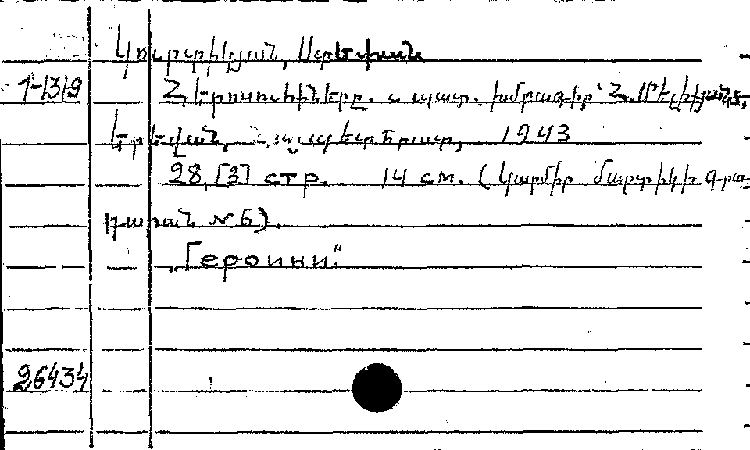 Կուրտիկյան, Ստեփան
1-1319 Հերոսուհիները. պատ. խմբագիր՝ Հ. Մելիքյանց,
Երևան, Հայպետհրատ, 1943
28, [3] стр. 14 см. (Կարմիր մարտիկի գրա-
դարան № 6).
„Героини“
26434